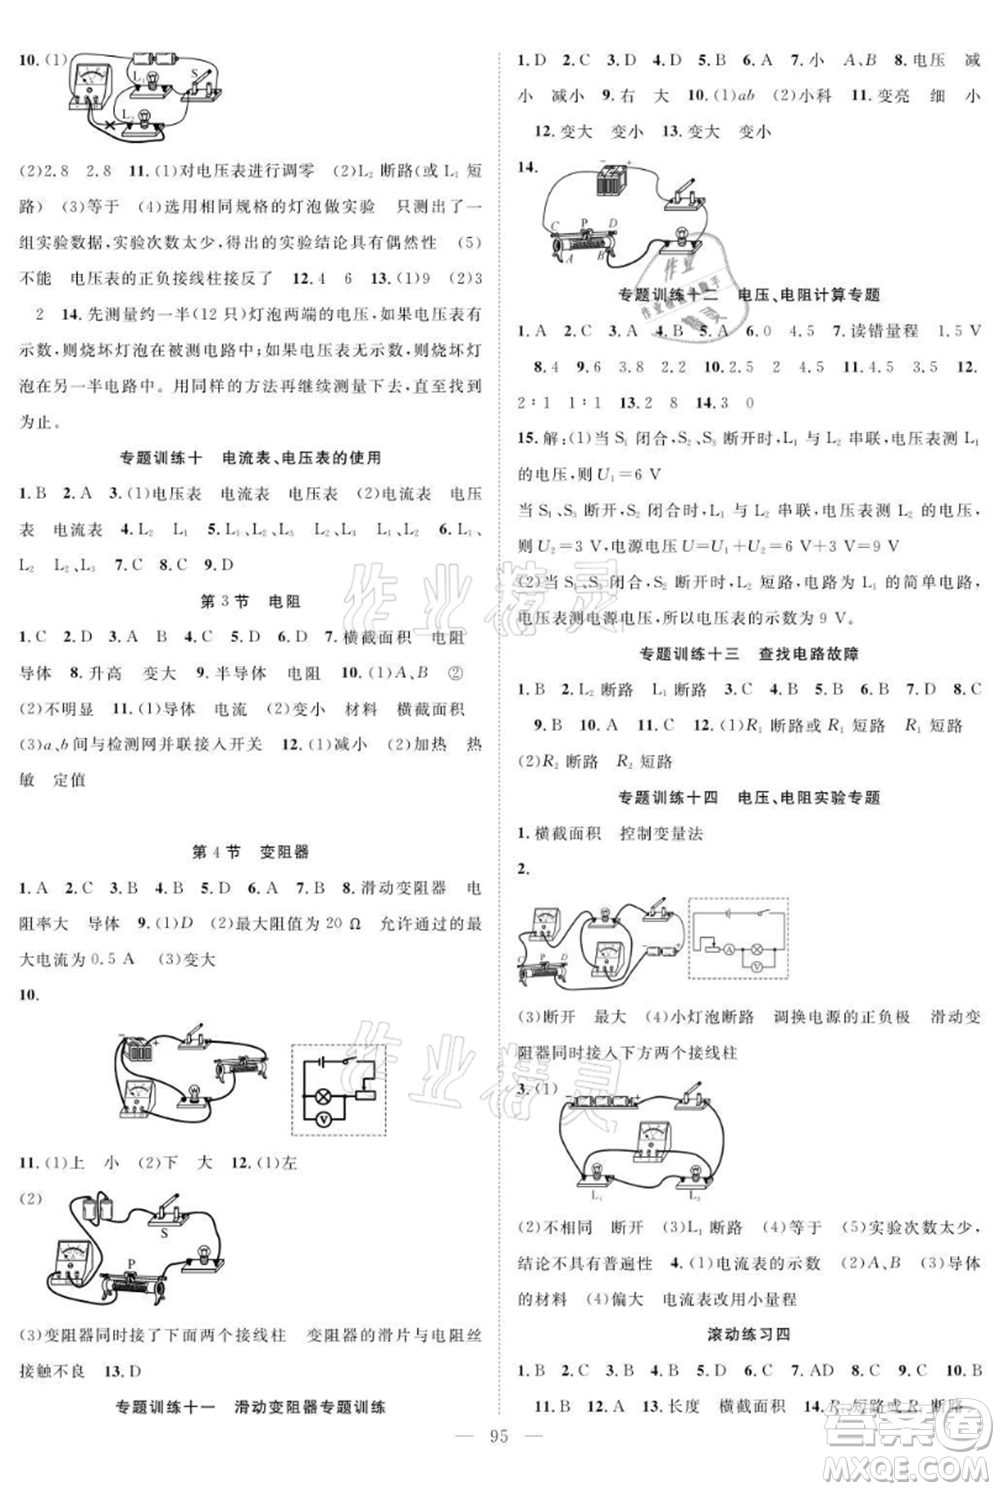 10.(1)
L₁ S
L₂
(2)2.8 2.8 11.(1)对电压表进行调零 (2)L₂ 断路(或 L₁ 短
路) (3)等于 (4)选用相同规格的灯泡做实验 只测出了一
组实验数据,实验次数太少,得出的实验结论具有偶然性 (5)
不能 电压表的正负接线柱接反了 12.4 6 13.(1)9 (2)3
2 14.先测量约一半(12 只)灯泡两端的电压,如果电压表有
示数,则烧坏灯泡在被测电路中;如果电压表无示数,则烧坏灯
泡在另一半电路中。用同样的方法再继续测量下去,直至找到
为止。
专题训练十 电流表、电压表的使用
1.B 2.A 3.(1)电压表 电流表 电压表 (2)电流表 电压
表 电流表 4.L₂ L₁ 5.L₂、L₃ L₁、L₂、L₃ L₃ 6.L₁、
L₂ L₂、L₃ 7.C 8.C 9.D
第 3 节 电阻
1.C 2.D 3.A B 4.C 5.D 6.D 7.横截面积 电阻
导体 8.升高 变大 9.半导体 电阻 10.(1)A、B ②
(2)不明显 11.(1)导体 电流 (2)变小 材料 横截面积
(3)a、b间与检测网并联接入开关 12.(1)减小 (2)加热 热
敏 定值
第 4 节 变阻器
1.A 2.C 3.B 4.A 5.C 6.B 7.B 8.滑动变阻器 电
阻率大 导体 9.(1)D (2)最大阻值为 20 Ω 允许通过的最
大电流为 0.5 A (3)变大
10.
11.(1)上 小 (2)下 大 12.(1)左
(2)
S
P
(3)变阻器同时接了下面两个接线柱 变阻器的滑片与电阻丝
接触不良 13.D
专题训练十一 滑动变阻器专题训练
1.D 2.C 3.D 4.D 5.C 6.A 7.小 A、A 8.电压 减
小 减小 9.右 大 10.(1)ab (2)小科 11.变亮 细 小
12.变大 变小 13.变大 变小
14.
C P D
A B
专题训练十二 电压、电阻计算专题
1.A 2.C 3.A 4.B 5.A 6.0 4.5 7.读错量程 1.5 V
8.4 9.6 3.8 2.2 10.2.5 2 11.4.5 4.5 3 12.
2∶1 1∶1 13.2 8 14.3 0
15.解:(1)当 S₁ 闭合,S₂、S₃ 断开时,L₁ 与 L₂ 串联,电压表测 L₁
的电压,则 U₁=6 V
当 S₁、S₃ 断开,S₂ 闭合时,L₁ 与 L₂ 串联,电压表测 L₂ 的电压,
则 U₂=3 V,电源电压=U₁+U₂=6 V+3 V=9 V
(2)当 S₁、S₃ 闭合,S₂ 断开时,L₂ 短路,电路为 L₁ 的简单电路,
电压表测电源电压,所以电压表的示数为 9 V。
专题训练十三 查找电路故障
1.B 2.L₂ 断路 L₁ 断路 3.C 4.C 5.D 6.C 7.D 8.C
9.B 10.A 11.A 12.(1)R₁ 断路或 R₁ 短路 R₁ 短路
(2)R₂ 断路 R₂ 短路
专题训练十四 电压、电阻实验专题
1.横截面积 控制变量法
2.
(3)断开 最大 (4)小灯泡断路 调换电源的正负极 滑动变
阻器同时接入下方两个接线柱
3.(1)
L₁ L₂
(2)不相同 断开 (3)L₁ 断路 (4)等于 (5)实验次数太少,
结论不具有普遍性 4.(1)电流表的示数 (2)A、B (3)导体
的材料 (4)偏大 电流表改用小量程
滚动练习四
1.B 2.C 3.D 4.B 5.C 6.C 7.AD 8.C 9.C 10.B
11.B 12.A 13.长度 横截面积 14.R₂ 短路或 R₁ 断路
95
作业精灵
答案圈
MXQE.COM